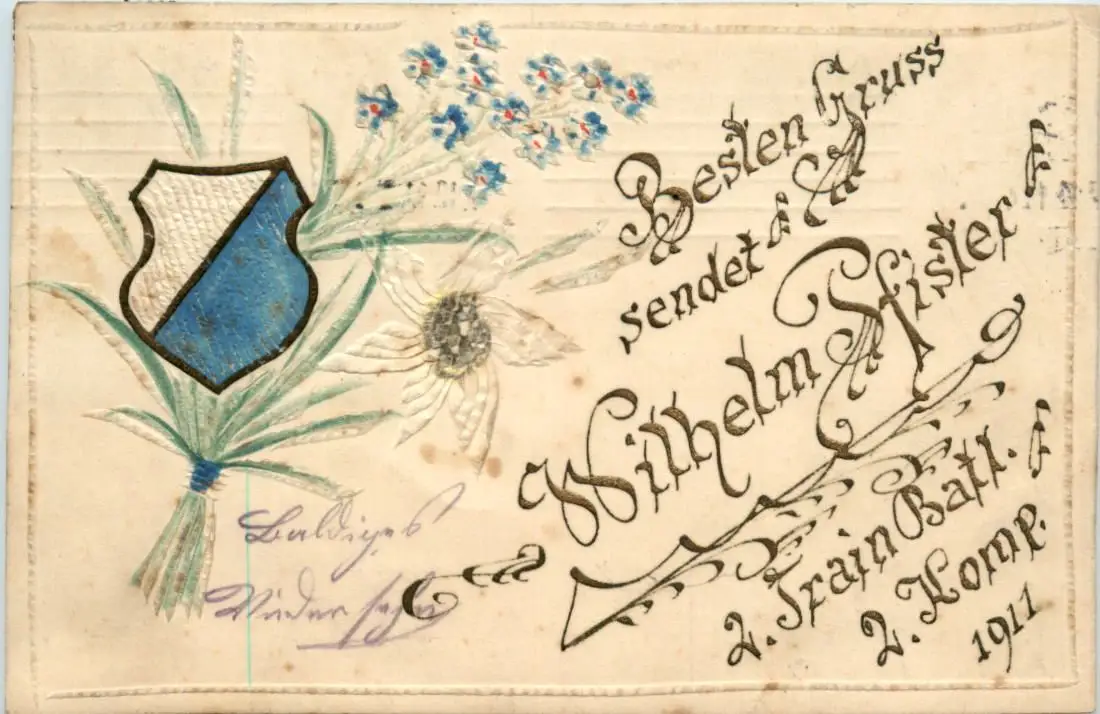 Besten Gruss
sendet
Wilhelm Pfister
2. Train Batl.
2. Komp.
1911
Baldiges
Wiedersehn